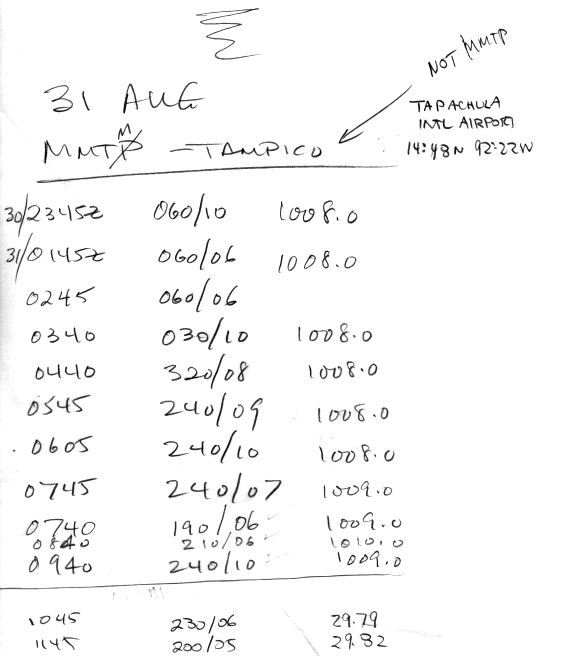 NOT MMTP
31 AUG
TAPACHULA
INTL AIRPORT
14:48N 92:22W
M
MMTP - TAMPICO
30/2345Z 060/10 1008.0
31/0145Z 060/06 1008.0
0245 060/06
0340 030/10 1008.0
0440 320/08 1008.0
0545 240/09 1008.0
0605 240/10 1008.0
0745 240/07 1009.0
0740 190/06 1009.0
0840 210/06 1010.0
0940 240/10 1009.0
1045 230/06 29.79
1145 200/05 29.82